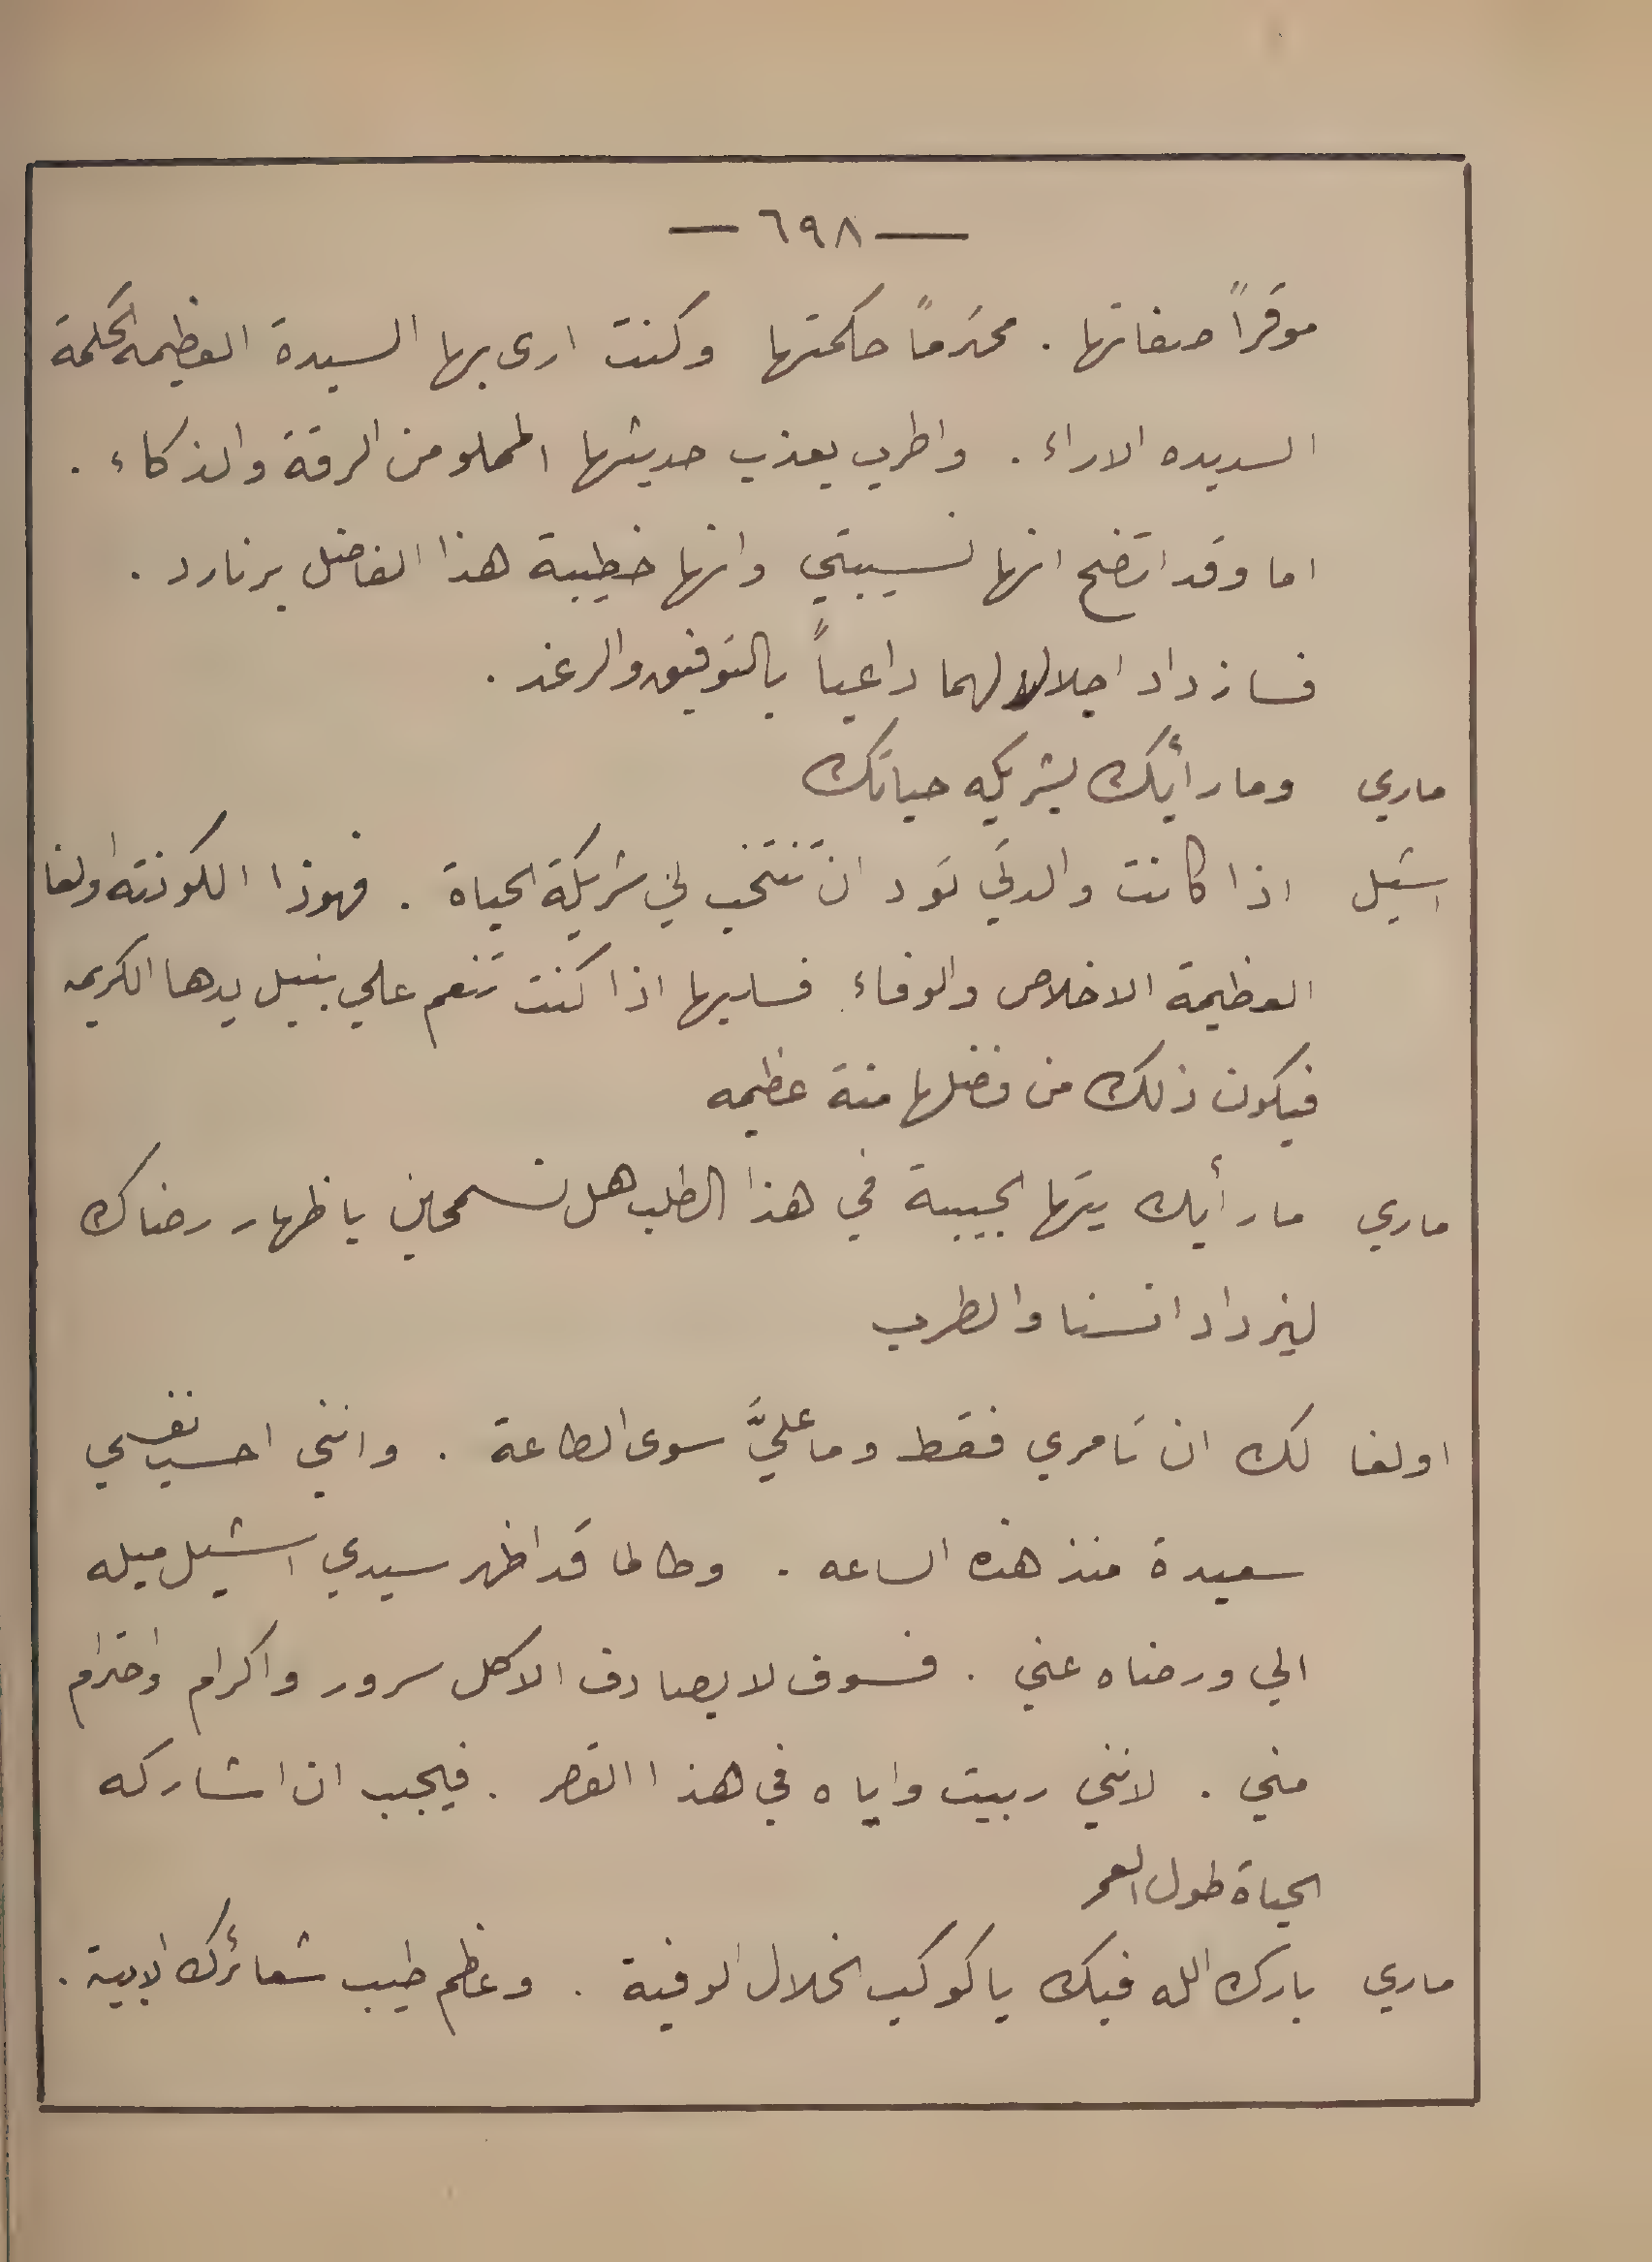 — ٦٩٨ —
موقراً صفاتها . محترماً حكمتها وكنت ارى بها السيدة العظيمه الحكمة
السديده الاراء . واطرب بعذب حديثها المملو من الرقة والذكاء .
اما وقد اتضح انها نسيبتي وانها خطيبة هذا الفاضل برنارد .
فسازداد اجلالا لهما داعياً بالتوفيق والرغد .
ماري ومارأيك بشريكه حياتك
اشيل اذا كانت والدتي تود ان تنتخب لي شريكة الحياة . فهوذا الكونته اولغا
العظيمة الاخلاص والوفاء . فسليها اذا كنت تنعم علي بنيل يدها الكريمه
فيكون ذلك من فضلها منة عظيمه
ماري مارأيك يتها الحبيبة في هذا الطلب هل تسمحين باظهار رضاك
ليزداد انسنا والطرب
اولغا لك ان تامري فقط وما عليَّ سوى الطاعة . وانني احسب نفسي
سعيدة منذ هذه الساعه . وطالما قد اظهر سيدي اشيل ميله
الي ورضاه عني . فسوف لا يصادف الا كل سرور واكرام واحترام
مني . لانني ربيت واياه في هذا القصر . فيجب ان اشاركه
الحياة طول العمر
ماري بارك الله فيك يا كوكب الخلال الوفية . وعظم طيب شعائرك الابية .